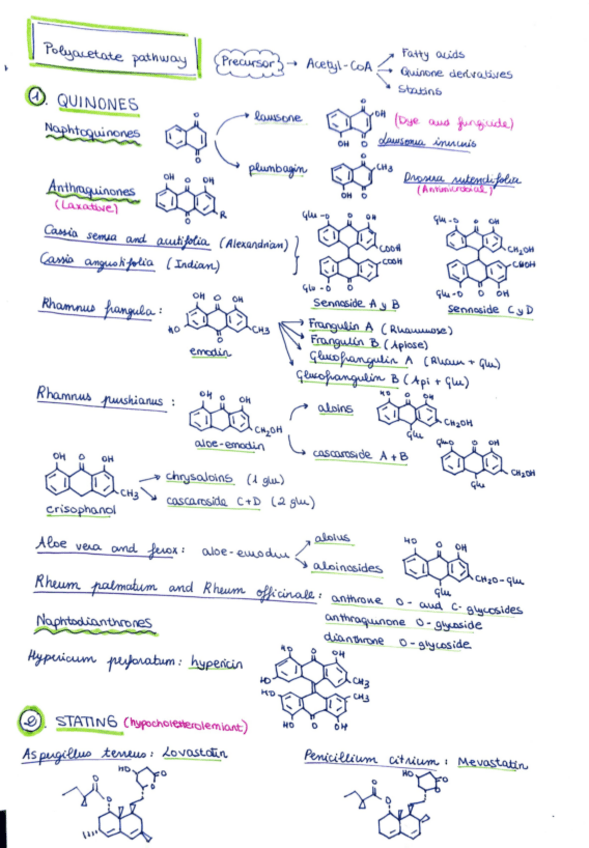 Polyacetate pathway
Precursor → Acetyl-CoA
Fatty acids
Quinone derivatives
Statins
1. QUINONES
Naphtoquinones
lawsone
(Dye and fungicide)
Lawsonia inermis
plumbagin
Drosera rotundifolia
(Antimicrobial)
Anthraquinones
(Laxative)
Cassia senna and acutifolia (Alexandrian)
Cassia angustifolia (Indian)
Sennoside A y B
Sennoside C y D
Rhamnus frangula:
emodin
Frangulin A (Rhamnose)
Frangulin B (Apiose)
Glucofrangulin A (Rham + Glu)
Glucofrangulin B (Api + Glu)
Rhamnus purshianus:
aloe-emodin
aloins
cascaroside A+B
crisophanol
chrysaloins (1 glu)
cascaroside C+D (2 glu)
Aloe vera and ferox: aloe-emodin
aloins
aloinosides
Rheum palmatum and Rheum officinale: anthrone O- and C-glycosides
anthraquinone O-glycoside
dianthrone O-glycoside
Naphtodianthrones
Hypericum perforatum: hypericin
2. STATINS (hypocholesterolemiant)
Aspergillus terreus: Lovastatin
Penicillium citrium: Mevastatin